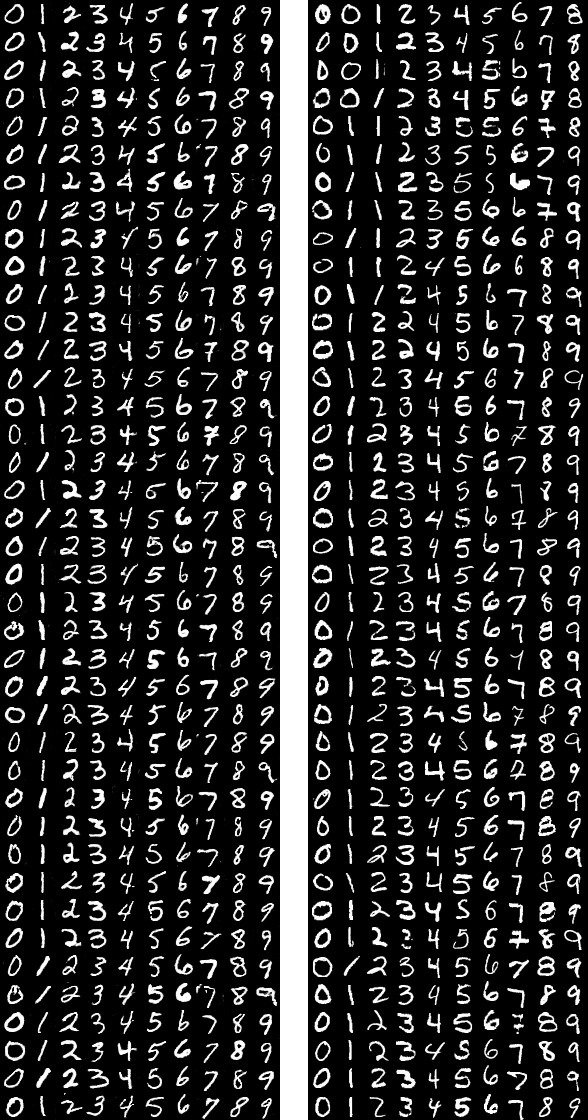 0 1 2 3 4 5 6 7 8 9
0 1 2 3 4 5 6 7 8 9
0 1 2 3 4 5 6 7 8 9
0 1 2 3 4 5 6 7 8 9
0 1 2 3 4 5 6 7 8 9
0 1 2 3 4 5 6 7 8 9
0 1 2 3 4 5 6 7 8 9
0 1 2 3 4 5 6 7 8 9
0 1 2 3 4 5 6 7 8 9
0 1 2 3 4 5 6 7 8 9
0 1 2 3 4 5 6 7 8 9
0 1 2 3 4 5 6 7 8 9
0 1 2 3 4 5 6 7 8 9
0 1 2 3 4 5 6 7 8 9
0 1 2 3 4 5 6 7 8 9
0 1 2 3 4 5 6 7 8 9
0 1 2 3 4 5 6 7 8 9
0 1 2 3 4 5 6 7 8 9
0 1 2 3 4 5 6 7 8 9
0 1 2 3 4 5 6 7 8 9
0 1 2 3 4 5 6 7 8 9
0 1 2 3 4 5 6 7 8 9
0 1 2 3 4 5 6 7 8 9
0 1 2 3 4 5 6 7 8 9
0 1 2 3 4 5 6 7 8 9
0 1 2 3 4 5 6 7 8 9
0 1 2 3 4 5 6 7 8 9
0 1 2 3 4 5 6 7 8 9
0 1 2 3 4 5 6 7 8 9
0 1 2 3 4 5 6 7 8 9
0 1 2 3 4 5 6 7 8 9
0 1 2 3 4 5 6 7 8 9
0 1 2 3 4 5 6 7 8 9
0 1 2 3 4 5 6 7 8 9
0 1 2 3 4 5 6 7 8 9
0 1 2 3 4 5 6 7 8 9
0 1 2 3 4 5 6 7 8 9
0 1 2 3 4 5 6 7 8 9
0 1 2 3 4 5 6 7 8 9
0 1 2 3 4 5 6 7 8 9
0 0 1 2 3 4 5 6 7 8
0 0 1 2 3 4 5 6 7 8
0 0 1 2 3 4 5 6 7 8
0 0 1 2 3 4 5 6 7 8
0 1 1 2 3 5 5 6 7 8
0 1 1 2 3 5 5 6 7 9
0 1 1 2 3 5 5 6 7 9
0 1 1 2 3 5 6 6 7 9
0 1 1 2 3 5 6 6 8 9
0 1 1 2 4 5 6 6 8 9
0 1 1 2 4 5 6 7 8 9
0 1 2 2 4 5 6 7 8 9
0 1 2 2 4 5 6 7 8 9
0 1 2 3 4 5 6 7 8 9
0 1 2 3 4 5 6 7 8 9
0 1 2 3 4 5 6 7 8 9
0 1 2 3 4 5 6 7 8 9
0 1 2 3 4 5 6 7 8 9
0 1 2 3 4 5 6 7 8 9
0 1 2 3 4 5 6 7 8 9
0 1 2 3 4 5 6 7 8 9
0 1 2 3 4 5 6 7 8 9
0 1 2 3 4 5 6 7 8 9
0 1 2 3 4 5 6 7 8 9
0 1 2 3 4 5 6 7 8 9
0 1 2 3 4 5 6 7 8 9
0 1 2 3 4 5 6 7 8 9
0 1 2 3 4 5 6 7 8 9
0 1 2 3 4 5 6 7 8 9
0 1 2 3 4 5 6 7 8 9
0 1 2 3 4 5 6 7 8 9
0 1 2 3 4 5 6 7 8 9
0 1 2 3 4 5 6 7 8 9
0 1 2 3 4 5 6 7 8 9
0 1 2 3 4 5 6 7 8 9
0 1 2 3 4 5 6 7 8 9
0 1 2 3 4 5 6 7 8 9
0 1 2 3 4 5 6 7 8 9
0 1 2 3 4 5 6 7 8 9
0 1 2 3 4 5 6 7 8 9